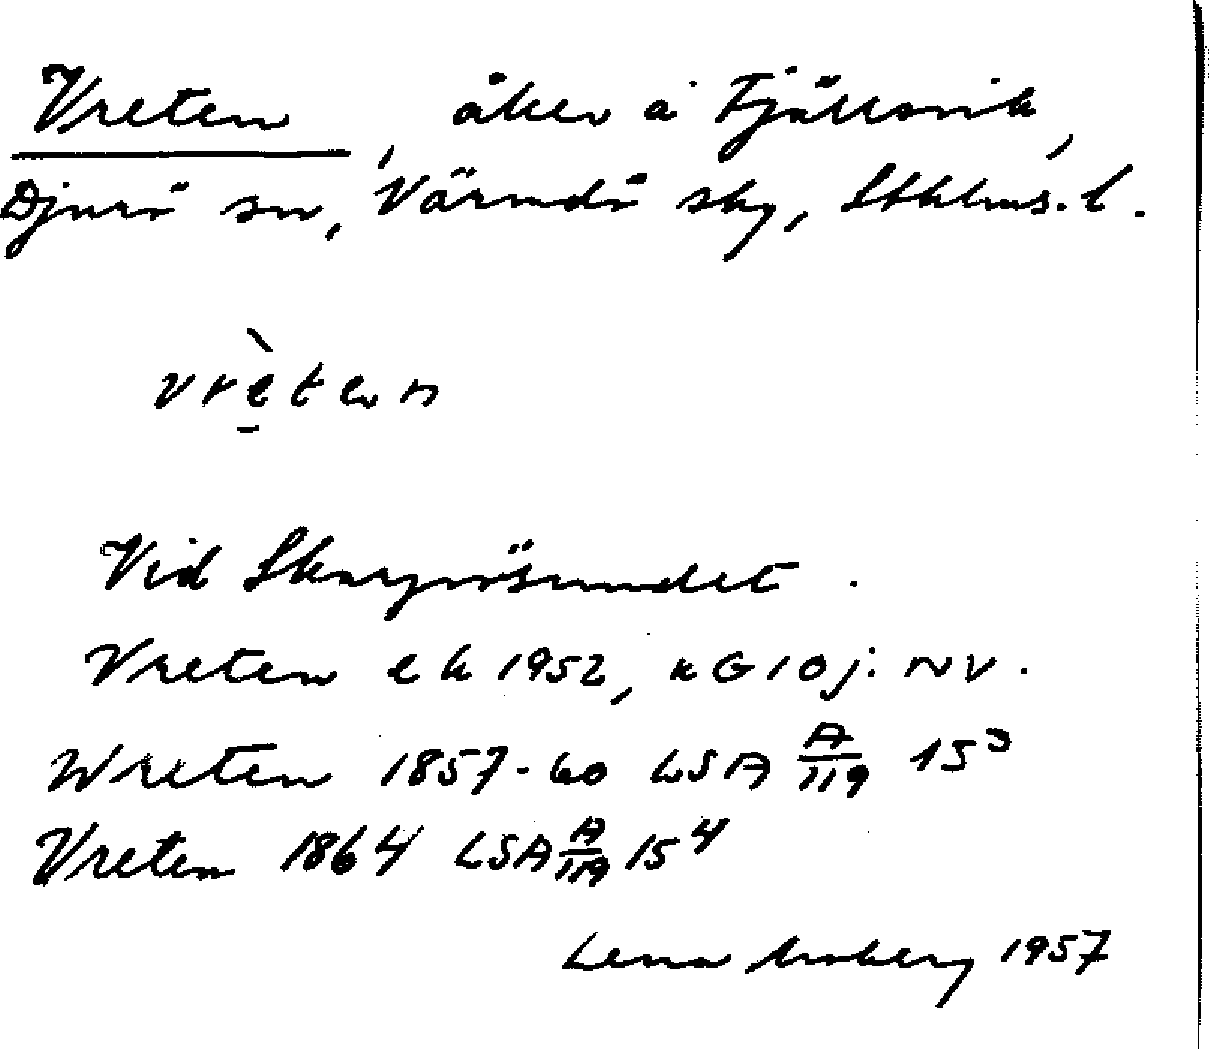 Vreten, åker å Fjällsvik,
Djurö sn, Värmdö skg, Sthlms. l.
vrèten
Vid Skarprösundet.
Vreten ek 1952, kG 10 j: NV.
Wreten 1857-60 LSA A/119 15³
Vreten 1864 LSA A/119 15⁴
Lena Moberg 1957